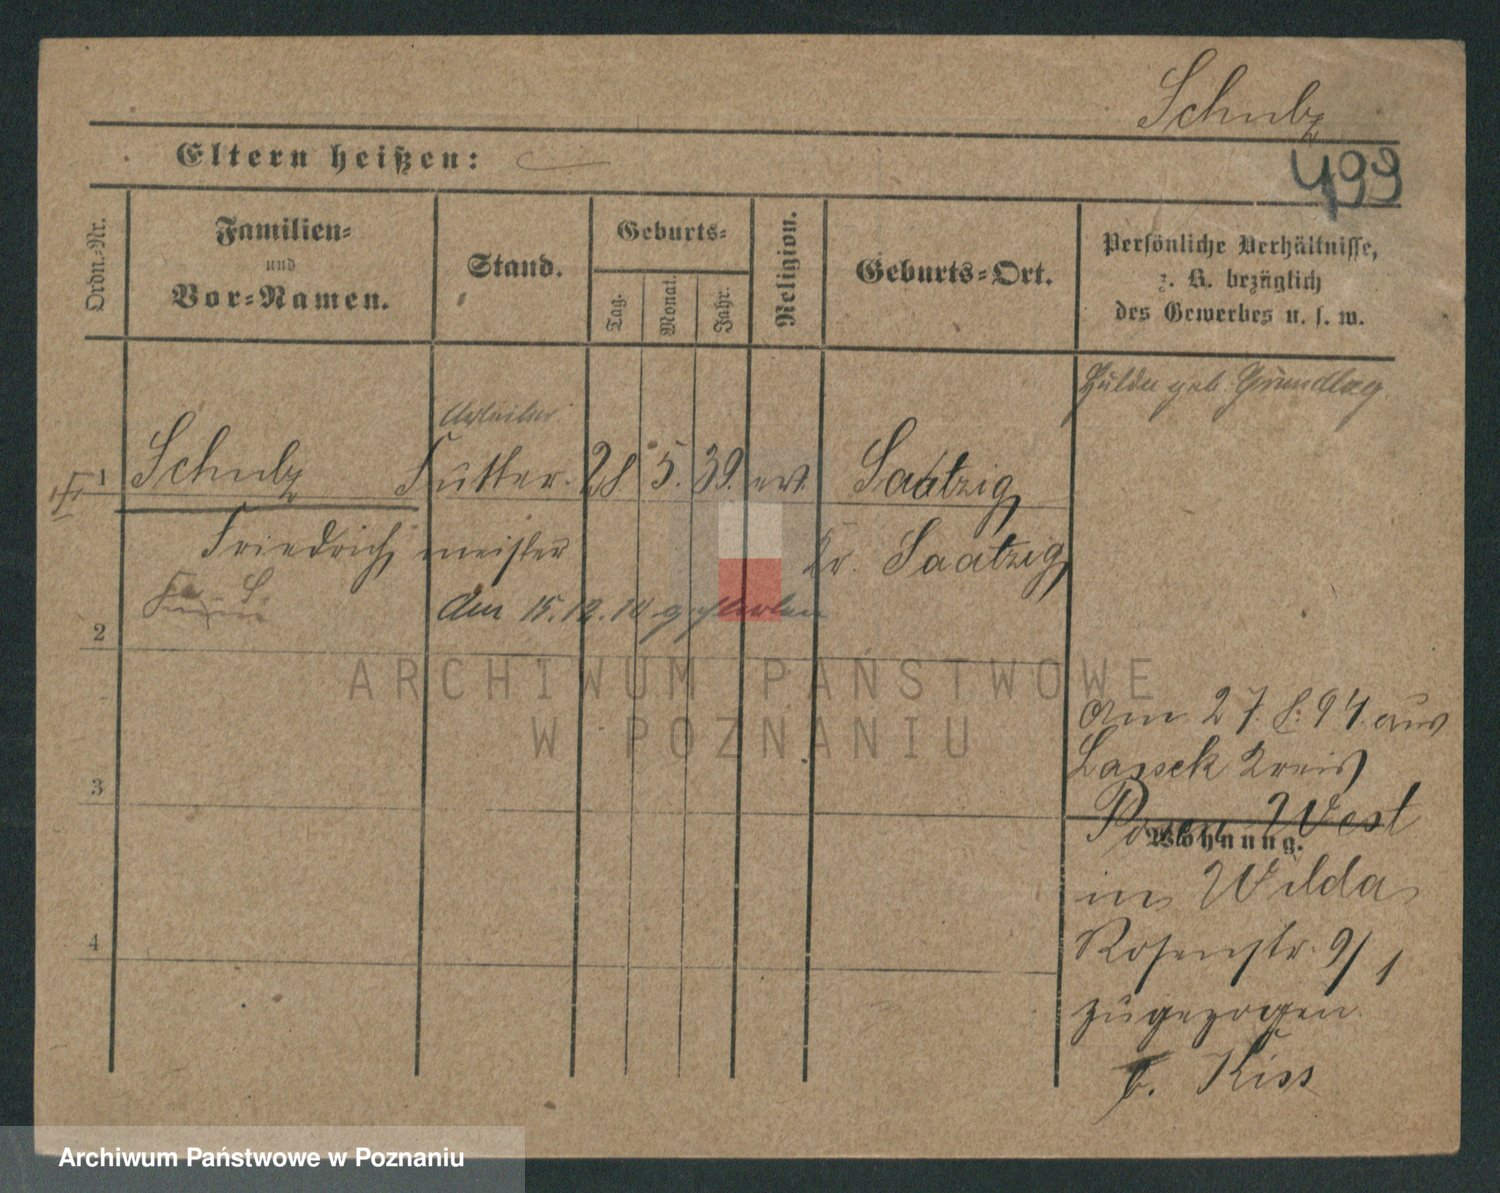 Schulz
Eltern heißen:
499
Ordn.-Nr.
Familien-
und
Vor-Namen.
Stand.
Geburts-
Tag.
Monat.
Jahr.
Religion.
Geburts-Ort.
Persönliche Verhältnisse,
z. B. bezüglich
des Gewerbes u. s. w.
Hulda geb. Grundlag
Arbeiter
1 Schulz Futter- 28. 5. 39. ev. Saatzig
Friedrich meister Kr. Saatzig
den 15.12.10 gestorben
2
ARCHIWUM PAŃSTWOWE
W POZNANIU
Am 27. 8. 94. aus
Lassek Kreis
3
Posen West
Wohnung.
in Wilda
Rosenstr. 9/1
4
zugezogen.
b. Kiss
Archiwum Państwowe w Poznaniu